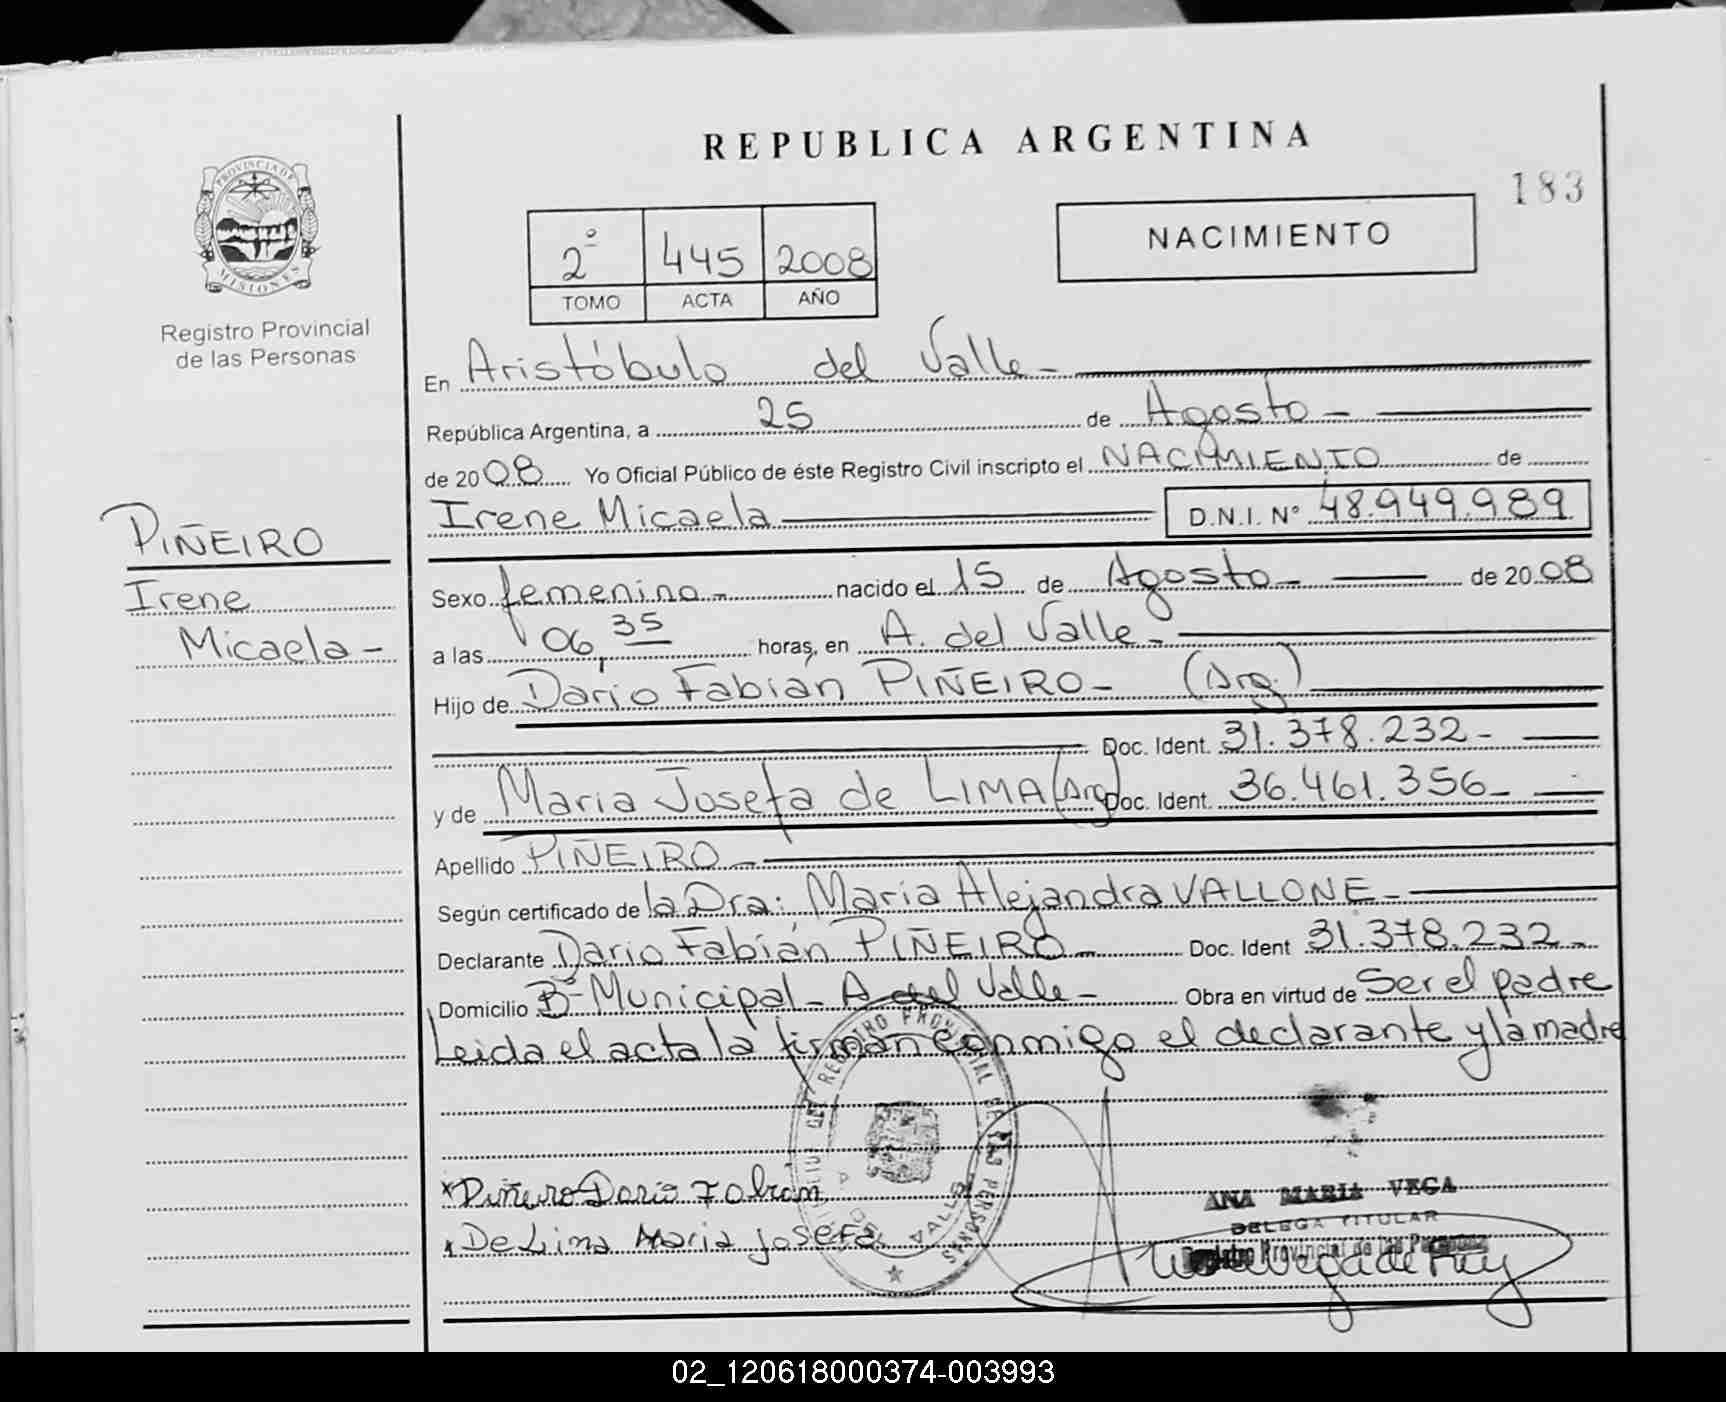 REPUBLICA ARGENTINA
183
PROVINCIA DE
MISIONES
Registro Provincial
de las Personas
2º 445 2008
TOMO ACTA AÑO
NACIMIENTO
En Aristóbulo del Valle-
República Argentina, a 25 de Agosto-
de 2008 Yo Oficial Público de éste Registro Civil inscripto el NACIMIENTO de
Irene Micaela D.N.I. Nº 48.949.989
PIÑEIRO
Irene
Micaela-
Sexo femenino- nacido el 15 de Agosto- de 2008
a las 06,35 horas, en A. del Valle-
Hijo de Dario Fabián PIÑEIRO- (Arg.)
Doc. Ident. 31.378.232-
y de Maria Josefa de LIMA (Arg) Doc. Ident. 36.461.356-
Apellido PIÑEIRO-
Según certificado de la Dra: Maria Alejandra VALLONE-
Declarante Dario Fabián PIÑEIRO- Doc. Ident 31.378.232-
Domicilio Bº Municipal- A del Valle- Obra en virtud de Ser el padre
Leida el acta la firman conmigo el declarante y la madre
REGISTRO PROVINCIAL DE LAS PERSONAS
A. DEL VALLE
x Piñeiro Dario Fabian
x De Lima Maria Josefa
ANA MARIA VEGA
DELEGA TITULAR
Registro Provincial de las Personas
02_120618000374-003993